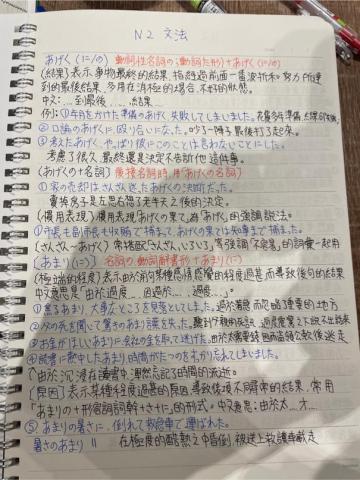 N2 文法
あげく(に/の) 動詞性名詞の;動詞た形)+あげく(に/の)
(結果)表示,事物最終的結果,指經過前面一番波折和努力所達到
的最後結果,多用在消極的場合,不好的狀態。
中文:...到最後....,結果...
例:①年月をかけた準備のあげく,失敗してしまいました。花費多年準備,結果卻失敗
②口論のあげくに,殴り合いになった。吵了一陣子最後打了起來。
③考えたあげく,やっぱり彼にこのことは言わないことにした。
考慮了很久,最終還是決定不告訴他這件事。
(あげくの+名詞) 後接名詞時,用「あげくの名詞」
①家の売却はさんざん迷ったあげくの決断だった。
賣掉房子是左思右想了老半天之後的決定。
(慣用表現)慣用表現「あげくの果て」為「あげく」的強調說法。
①市長も副市長も収賄で捕まってあげくの果ては知事まで捕まった。
(さんざん~あげく) 常搭配「さんざん,いろいろ」等強調「不容易」的詞彙一起用
(あまり(に)) 名詞の、動詞辭書形+あまり(に)
(極端的程度)表示由於前句某種感情感覺的程度過甚而導致後句的結果
中文意思是「由於過度...因過於...過度...」。
①焦るあまり、大事なところを見落としてしまった。過於著急而忽略了重要的地方
②父の死を聞いて驚きのあまり言葉を失った。
③お金がほしいあまりに,会社の金を取って逃げた。由於太需要錢
④読書に熱中したあまり,時間がたつのをすっかり忘れてしまいました。
↑由於沉浸在讀書中,渾然忘記了時間的流逝。
(原因)表示某種程度過甚的原因,導致後項不同尋常的結果,常用
「あまりの+形容詞詞幹+さ+に」的形式。中文意思:由於太...才...
⑤あまりの暑さに,倒れて救急車で運ばれた。
暑さのあまり 〃 在極度的酷熱之中昏倒,被送上救護車載走